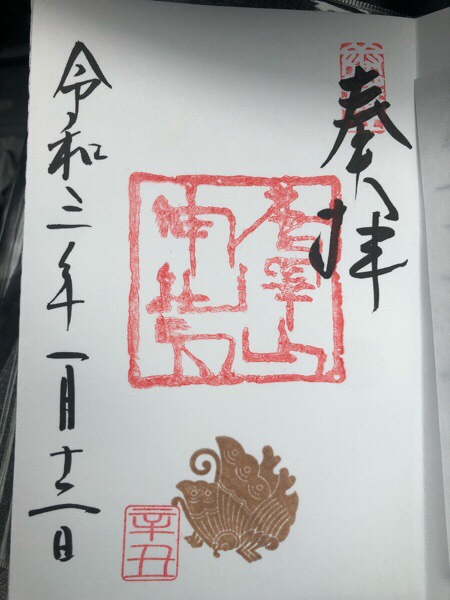 奉拝
唐澤山
神社
令和三年一月十二日
辛丑